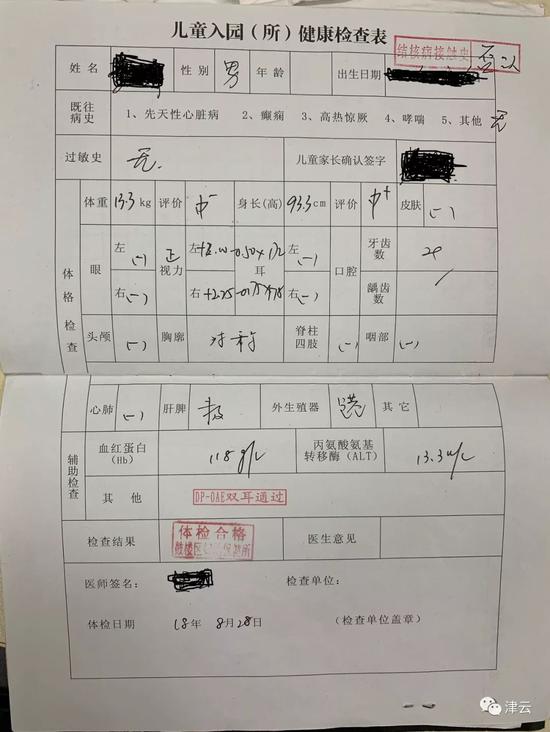 儿童入园（所）健康检查表
结核病接触史 否认
姓名 性别 男 年龄 出生日期
既往病史 1、先天性心脏病 2、癫痫 3、高热惊厥 4、哮喘 5、其他 无
过敏史 无. 儿童家长确认签字
体重 13.3kg 评价 中- 身长(高) 93.3cm 评价 中+ 皮肤 (-)
体格检查 眼 左 (-) 视力 左 耳 左 (-) 口腔 牙齿数
右 (-) 右 +2.25 右 (-) 龋齿数
头颅 (-) 胸廓 对称 脊柱四肢 (-) 咽部 (-)
心肺 (-) 肝脾 外生殖器 其它
辅助检查 血红蛋白（Hb） 118g/L 丙氨酸氨基转移酶（ALT） 13.3u/L
其他 DP-OAE双耳通过
检查结果 体检合格 医生意见
医师签名： 检查单位：
体检日期 18年 8月28日 （检查单位盖章）
津云